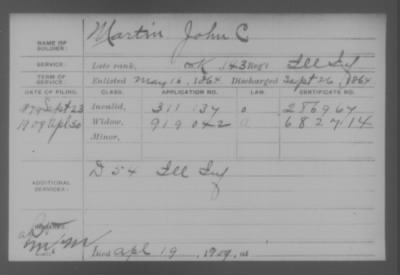 NAME OF SOLDIER: Martin John C
SERVICE: Late rank, K 143 Reg't Ill Inf
TERM OF SERVICE: Enlisted May 16, 1864 Discharged Sept 26, 1864
DATE OF FILING. CLASS. APPLICATION NO. LAW. CERTIFICATE NO.
1879 Sept 23 Invalid, 311 134 286967
1909 Apl 30 Widow, 919 042 682714
Minor,
ADDITIONAL SERVICES: D 54 Ill Inf
REMARKS:
Died Apl 19, 1909, at